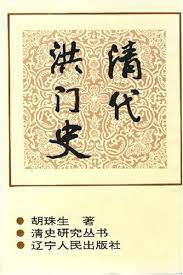 清代
洪门史
胡珠生 著
清史研究丛书
辽宁人民出版社